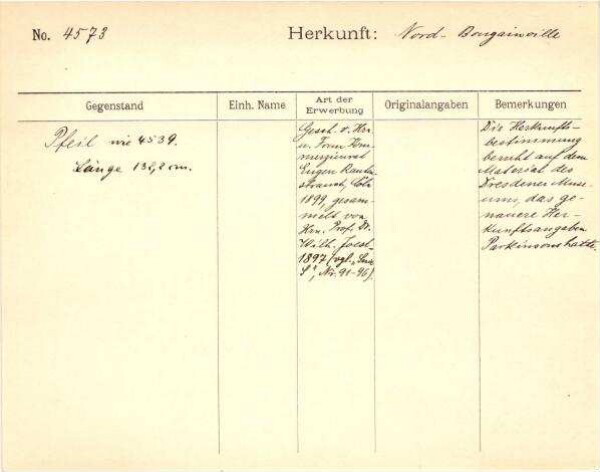 No. 4573
Herkunft: Nord-Bougainville
Gegenstand
Einh. Name
Art der Erwerbung
Originalangaben
Bemerkungen
Pfeil wie 4539.
Länge 138,2 cm.
Gesch. v. Hrn
u. Frau Kom-
merzienrat
Eugen Rauten-
strauch, Cöln
1899, gesam-
melt von
Hrn. Prof. Dr.
Wilh. Joest
1897 (vgl.
Nr. 91-96).
Die Herkunfts-
bestimmung
beruht auf dem
Material des
Dresdener Muse-
ums, das ge-
nauere Her-
kunftsangaben
Parkinsons hatte.